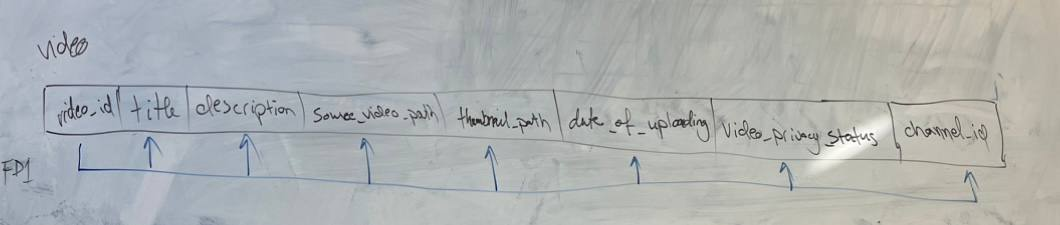 video
video_id title description source_video_path thumbnail_path date_of_uploading video_privacy_status channel_id
FD1